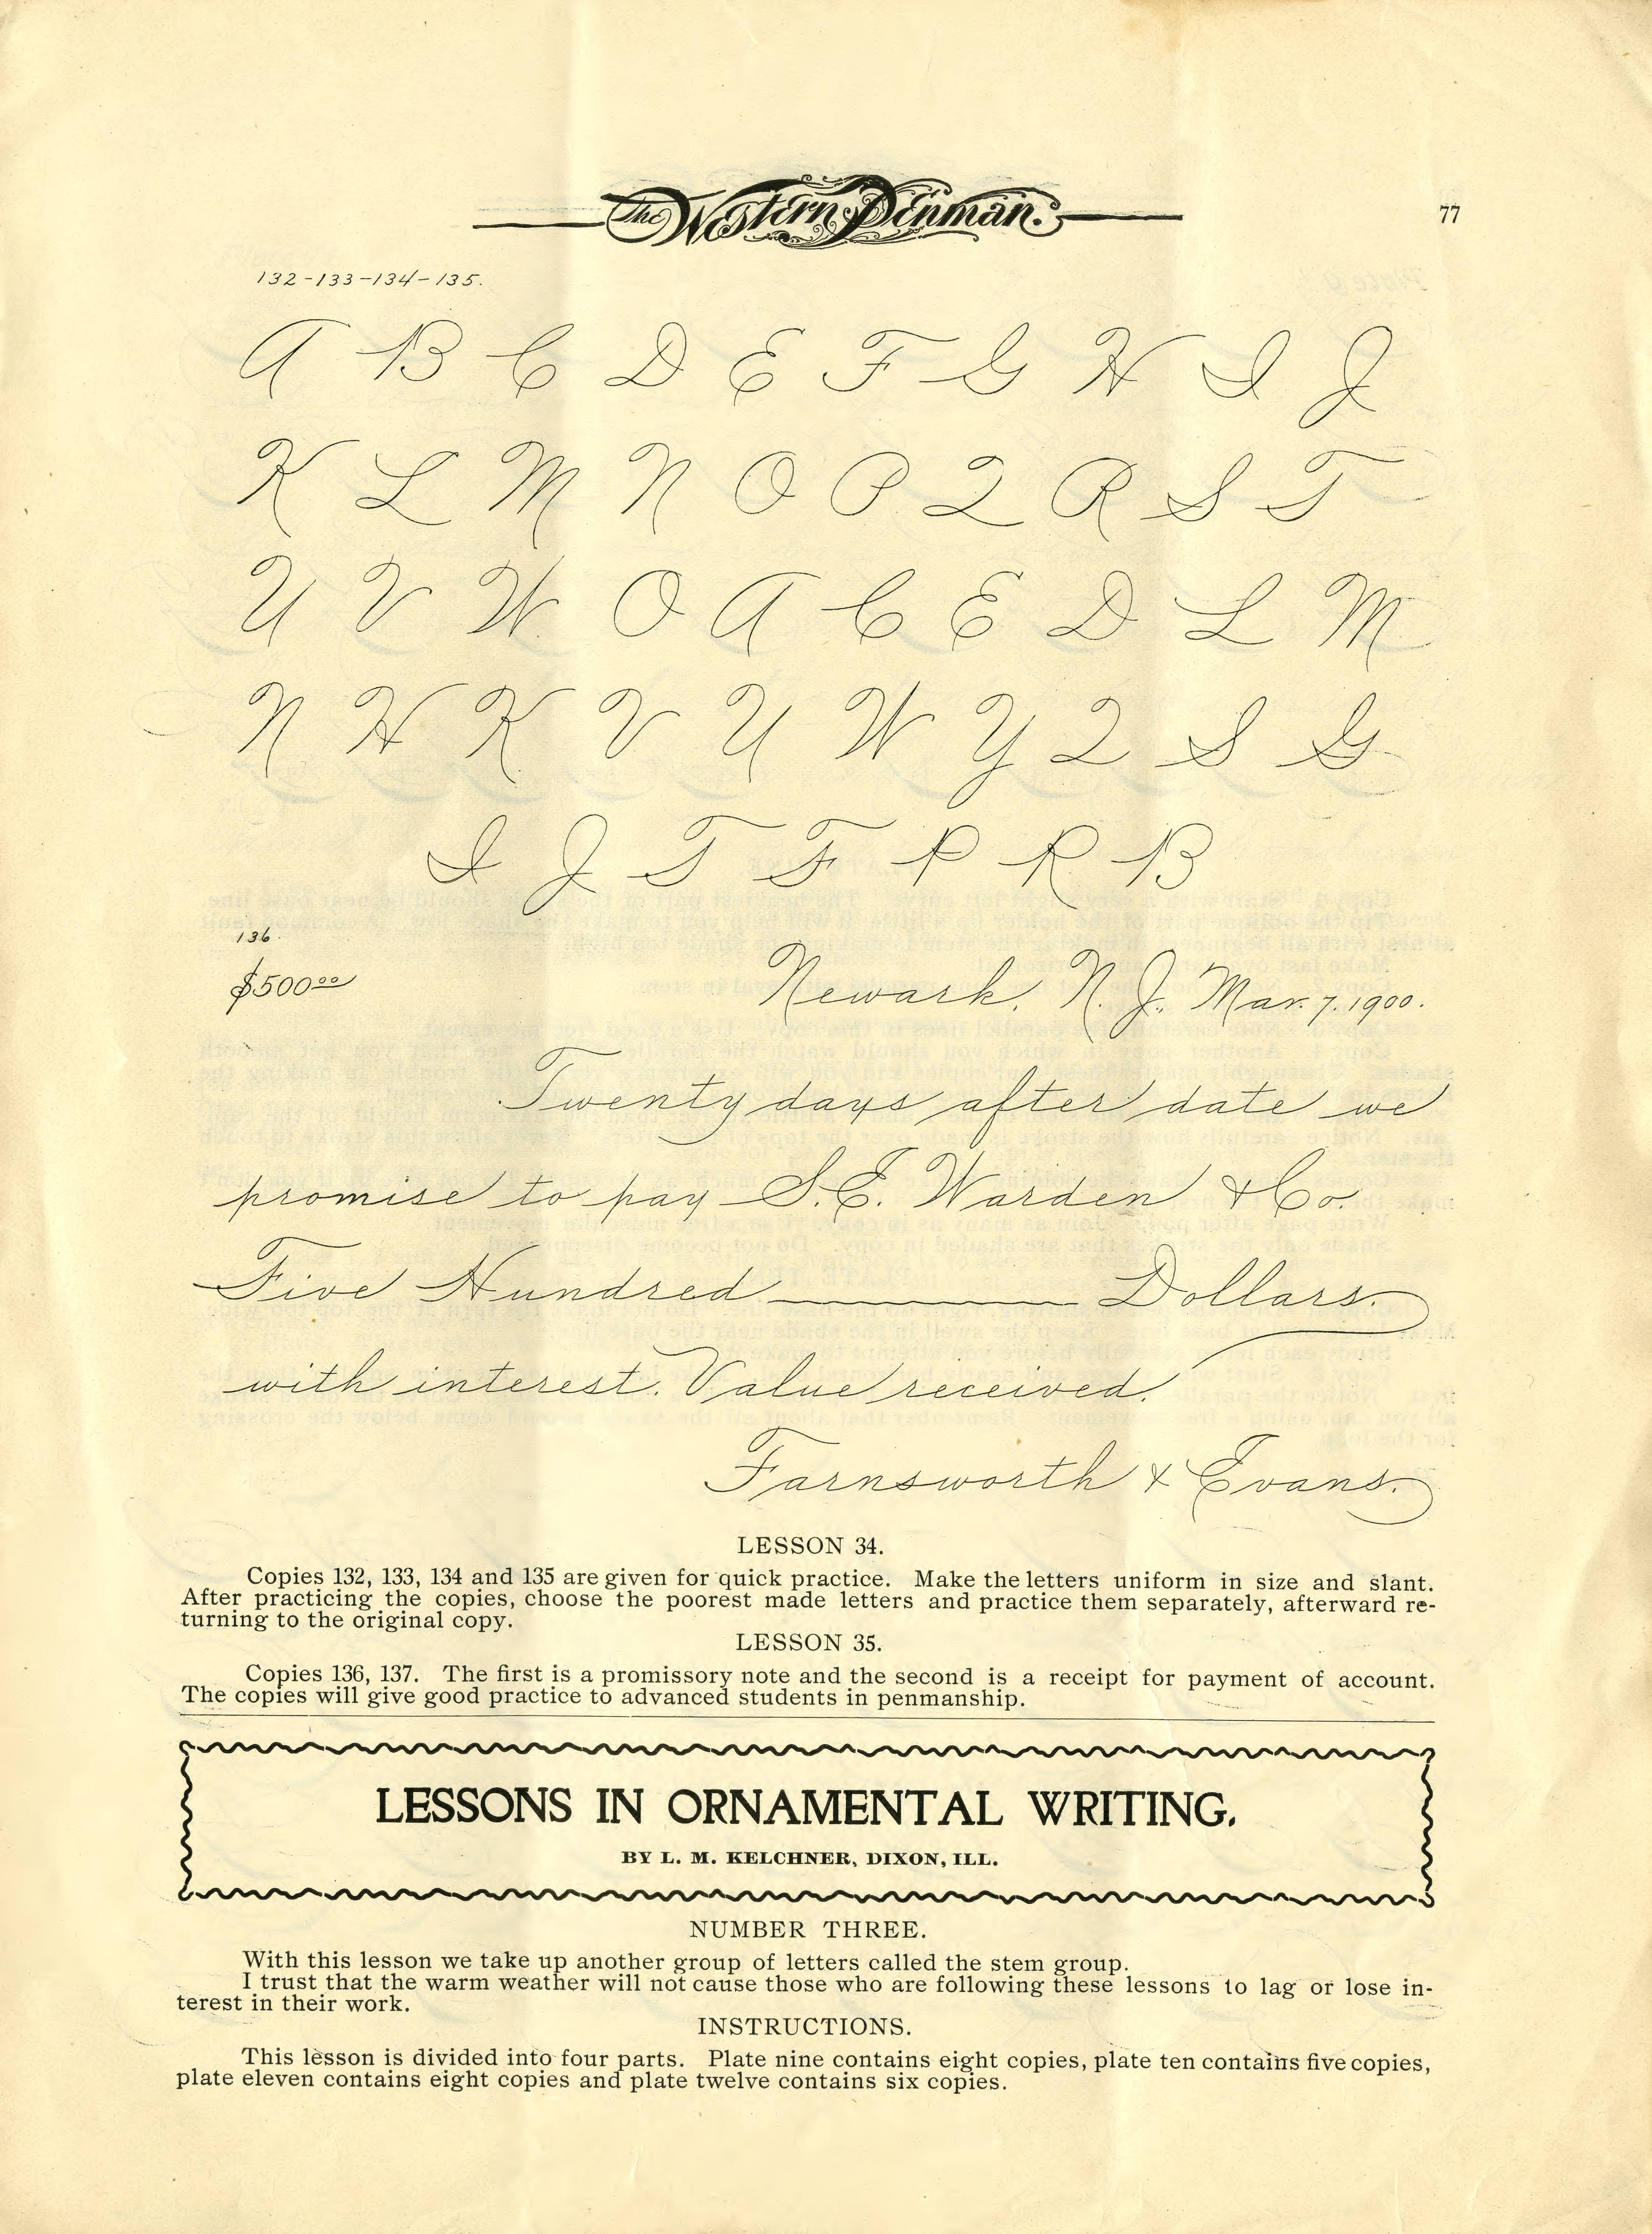 The Western Penman.
77
132-133-134-135.
A B C D E F G H I J
K L M N O P Q R S T
U V W O A C E D L M
N H K V U W Y Q S G
I J T F P R B
136.
$500 00
Newark, N. J., Mar. 7, 1900.
Twenty days after date we
promise to pay S. E. Warden & Co.
Five Hundred ———— Dollars.
with interest. Value received.
Farnsworth & Evans.
LESSON 34.
Copies 132, 133, 134 and 135 are given for quick practice. Make the letters uniform in size and slant.
After practicing the copies, choose the poorest made letters and practice them separately, afterward re-
turning to the original copy.
LESSON 35.
Copies 136, 137. The first is a promissory note and the second is a receipt for payment of account.
The copies will give good practice to advanced students in penmanship.
LESSONS IN ORNAMENTAL WRITING.
BY L. M. KELCHNER, DIXON, ILL.
NUMBER THREE.
With this lesson we take up another group of letters called the stem group.
I trust that the warm weather will not cause those who are following these lessons to lag or lose in-
terest in their work.
INSTRUCTIONS.
This lesson is divided into four parts. Plate nine contains eight copies, plate ten contains five copies,
plate eleven contains eight copies and plate twelve contains six copies.